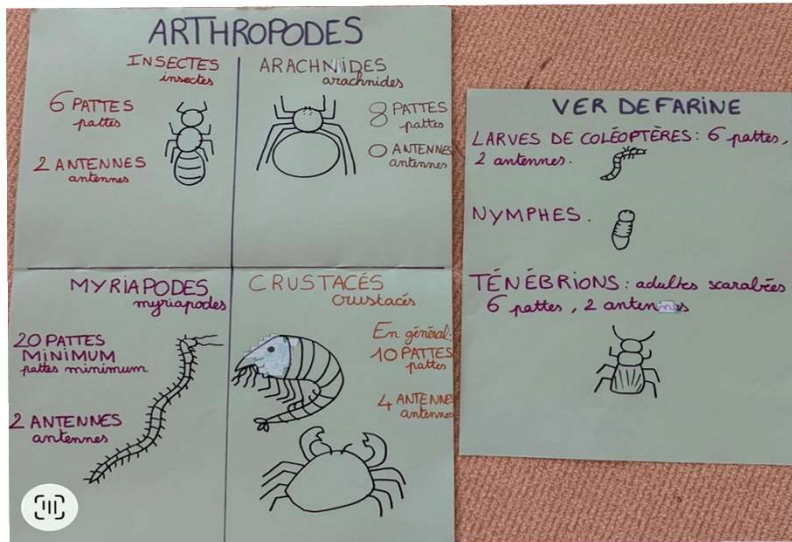 ARTHROPODES
INSECTES
insectes
6 PATTES
pattes
2 ANTENNES
antennes
ARACHNIDES
arachnides
8 PATTES
pattes
0 ANTENNES
antennes
MYRIAPODES
myriapodes
20 PATTES
MINIMUM
pattes minimum
2 ANTENNES
antennes
CRUSTACÉS
crustacés
En général:
10 PATTES
pattes
4 ANTENNES
antennes
VER DE FARINE
LARVES DE COLÉOPTÈRES : 6 pattes,
2 antennes.
NYMPHES.
TÉNÉBRIONS : adultes scarabées
6 pattes, 2 antennes